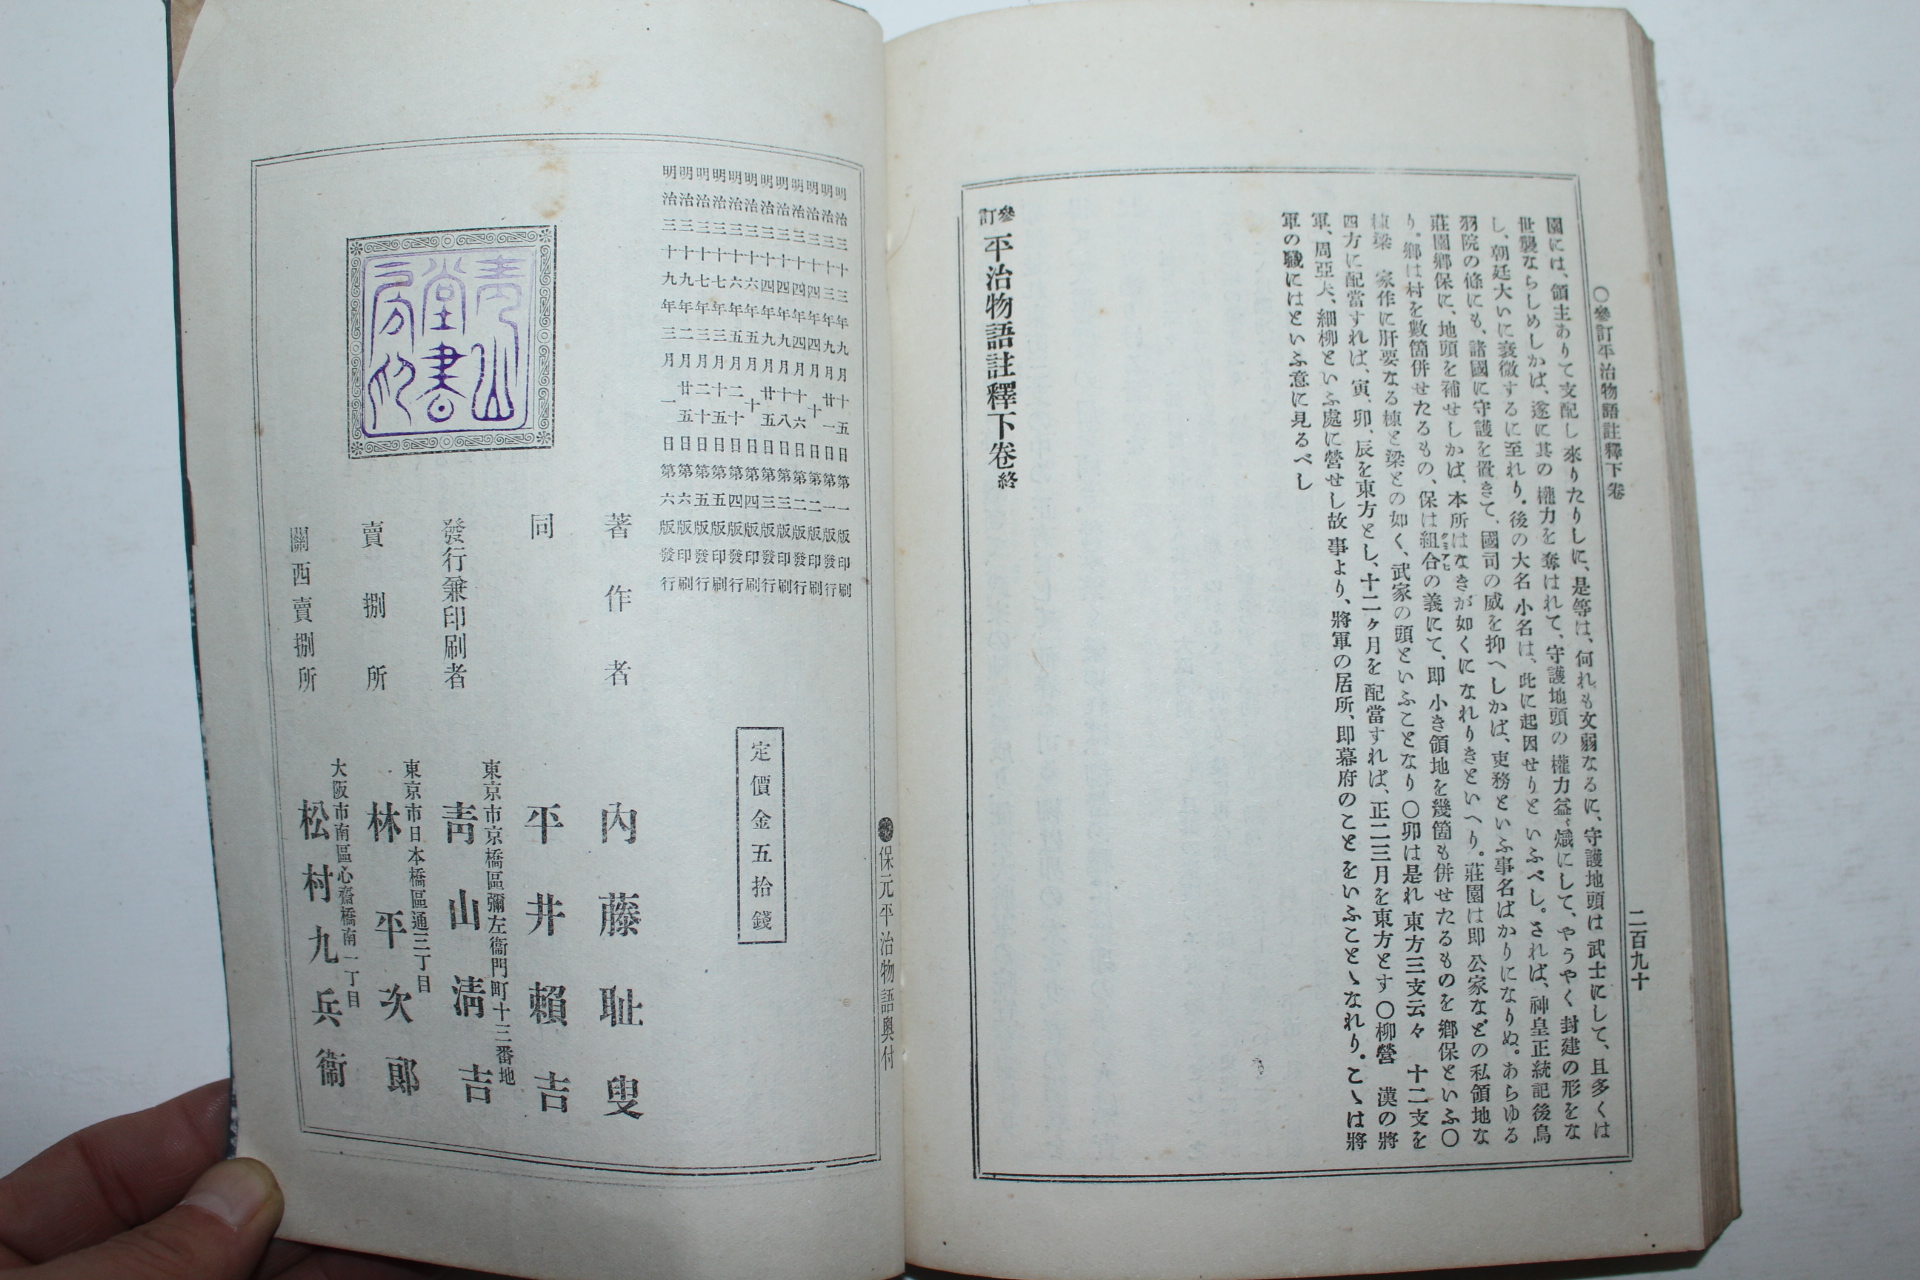 ○參訂平治物語註釋下卷
二百九十
園には、領主ありて支配し來りたりしに、是等は、何れも文弱なるに、守護地頭は武士にして、且多くは
世襲ならしめしかば、遂に其の權力を奪はれて、守護地頭の權力益〻熾にして、やうやく封建の形をな
し、朝廷大いに衰微するに至れり。後の大名小名は、此に起因せりといふべし。されば、神皇正統記後鳥
羽院の條にも、諸國に守護を置きて、國司の威を抑へしかば、吏務といふ事名ばかりになりぬ。あらゆる
莊園鄕保に、地頭を補せしかば、本所はなきが如くになれりきといへり。莊園は即公家などの私領地な
り。鄕は村を數箇併せたるもの、保は組合の義にて、即小き領地を幾箇も併せたるものを鄕保といふ○
棟梁　家作に肝要なる棟と梁との如く、武家の頭といふことなり○卯は是れ東方三支云々　十二支を
四方に配當すれば、寅、卯、辰を東方とし、十二ヶ月を配當すれば、正二三月を東方とす○柳營　漢の將
軍、周亞夫、細柳といふ處に營せし故事より、將軍の居所、即幕府のことをいふことゝなれり。こゝは將
軍の職にはといふ意に見るべし
參訂平治物語註釋下卷終
保元平治物語奧付
明治三十三年九月十五日第一版印刷
明治三十三年九月廿一日第一版發行
明治三十四年四月十一日第二版印刷
明治三十四年四月十六日第二版發行
明治三十四年九月十八日第三版印刷
明治三十四年九月廿五日第三版發行
明治三十六年五月十日第四版印刷
明治三十六年五月二十日第四版發行
明治三十七年三月十五日第五版印刷
明治三十七年三月二十日第五版發行
明治三十九年二月廿五日第六版印刷
明治三十九年三月一日第六版發行
定價金五拾錢
著作者　內藤耻叟
同　平井賴吉
東京市京橋區彌左衞門町十三番地
發行兼印刷者　靑山淸吉
東京市日本橋區通三丁目
賣捌所　林平次郎
大阪市南區心齋橋南一丁目
關西賣捌所　松村九兵衞
青山
堂書
房印